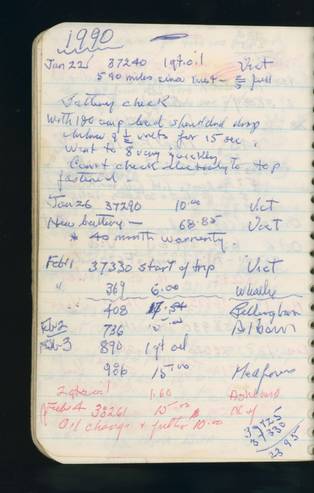 1990
Jan 22 37240 1 qt. oil Vict
590 miles since last - full
Battery check
With 180 amp load should not drop
below 9 1/2 volts for 15 sec.
Went to 8 very quickly
Can't check electrolyte - top
fastened.
Jan 26 37290 10.00 Vict
New battery - 68.85 Vict
40 month warranty.
Feb 1 37330 start of trip Vict
" 369 6.00
408 Bellingham
Feb 2 736 Albany
Feb 3 890 1 qt oil
986 15.00 Medford
2 qts oil 1.60 Ashland
Feb 4 38261 15.00
Oil change & filter 10.00
37330